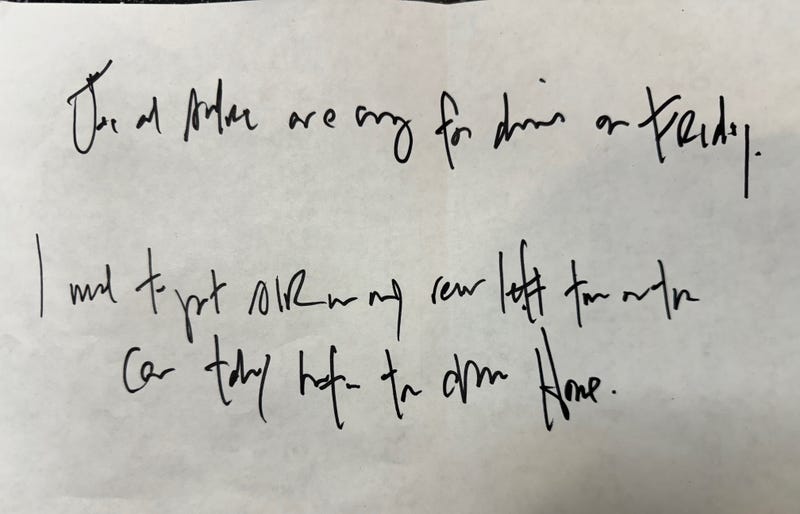 Joe and are coming for dinner on Friday.
I need to put AIR in my rear left tire on the
Car today before the drive Home.